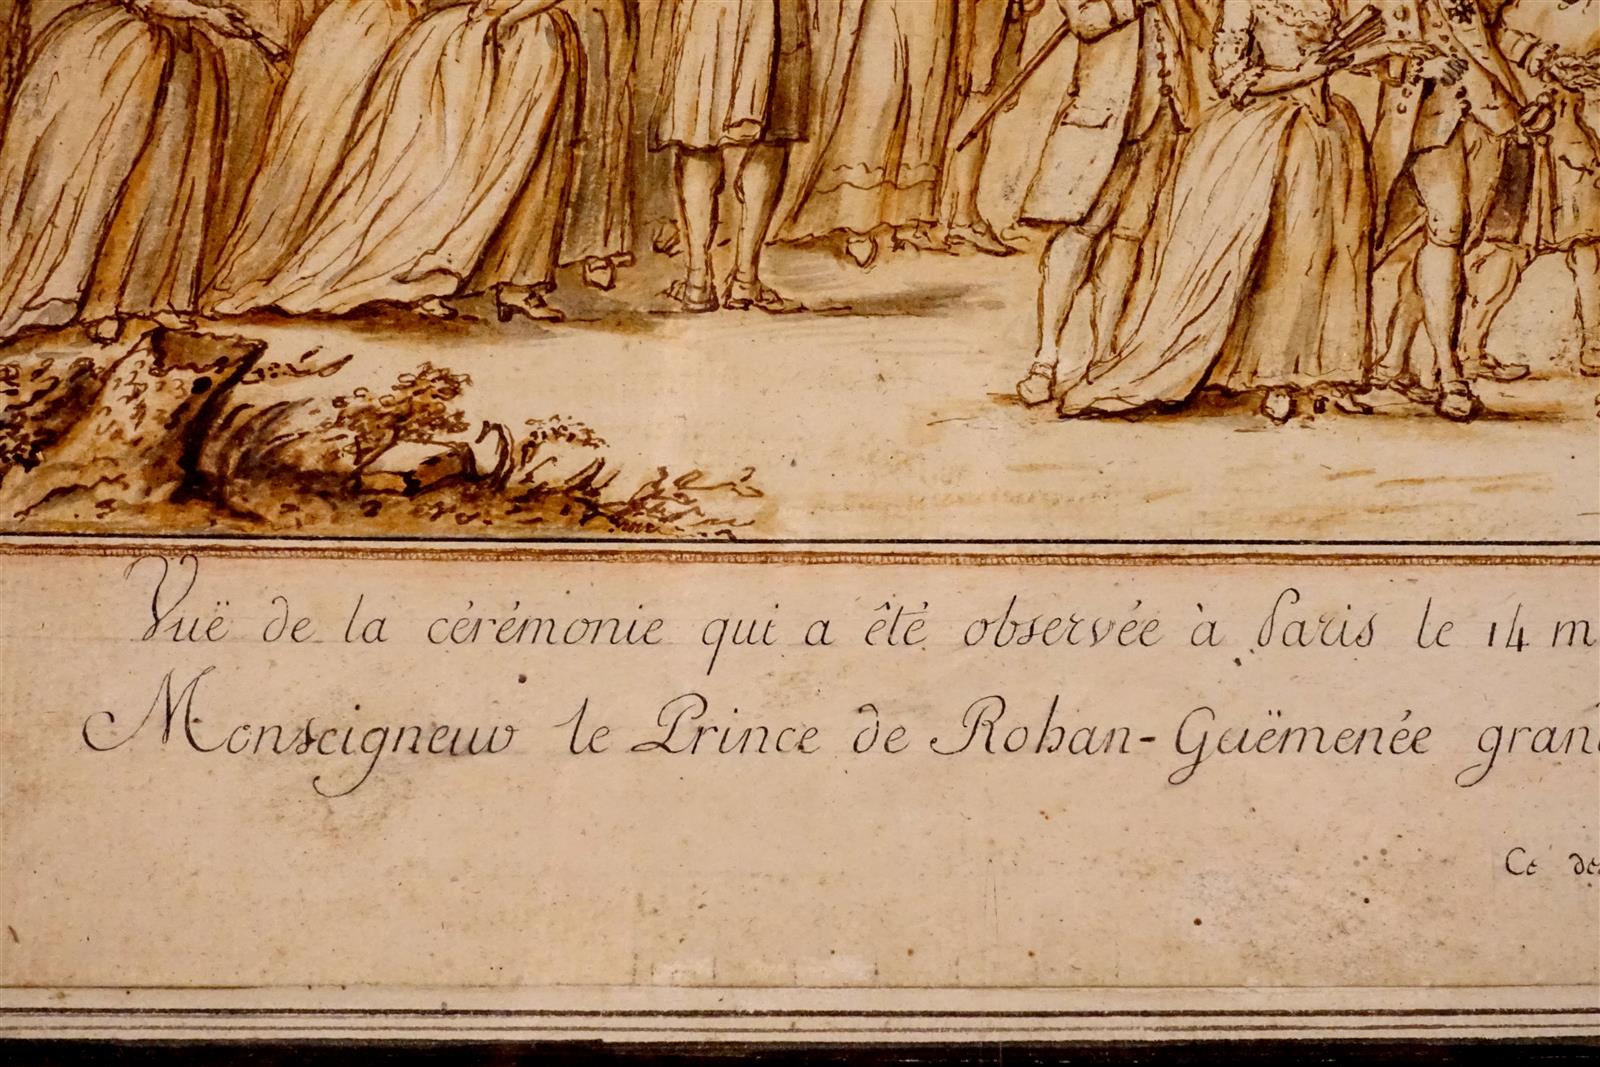 Vuë de la cérémonie qui a êté observée à Paris le 14 m
Monseigneur le Prince de Rohan-Guëmenée gran
Ce des